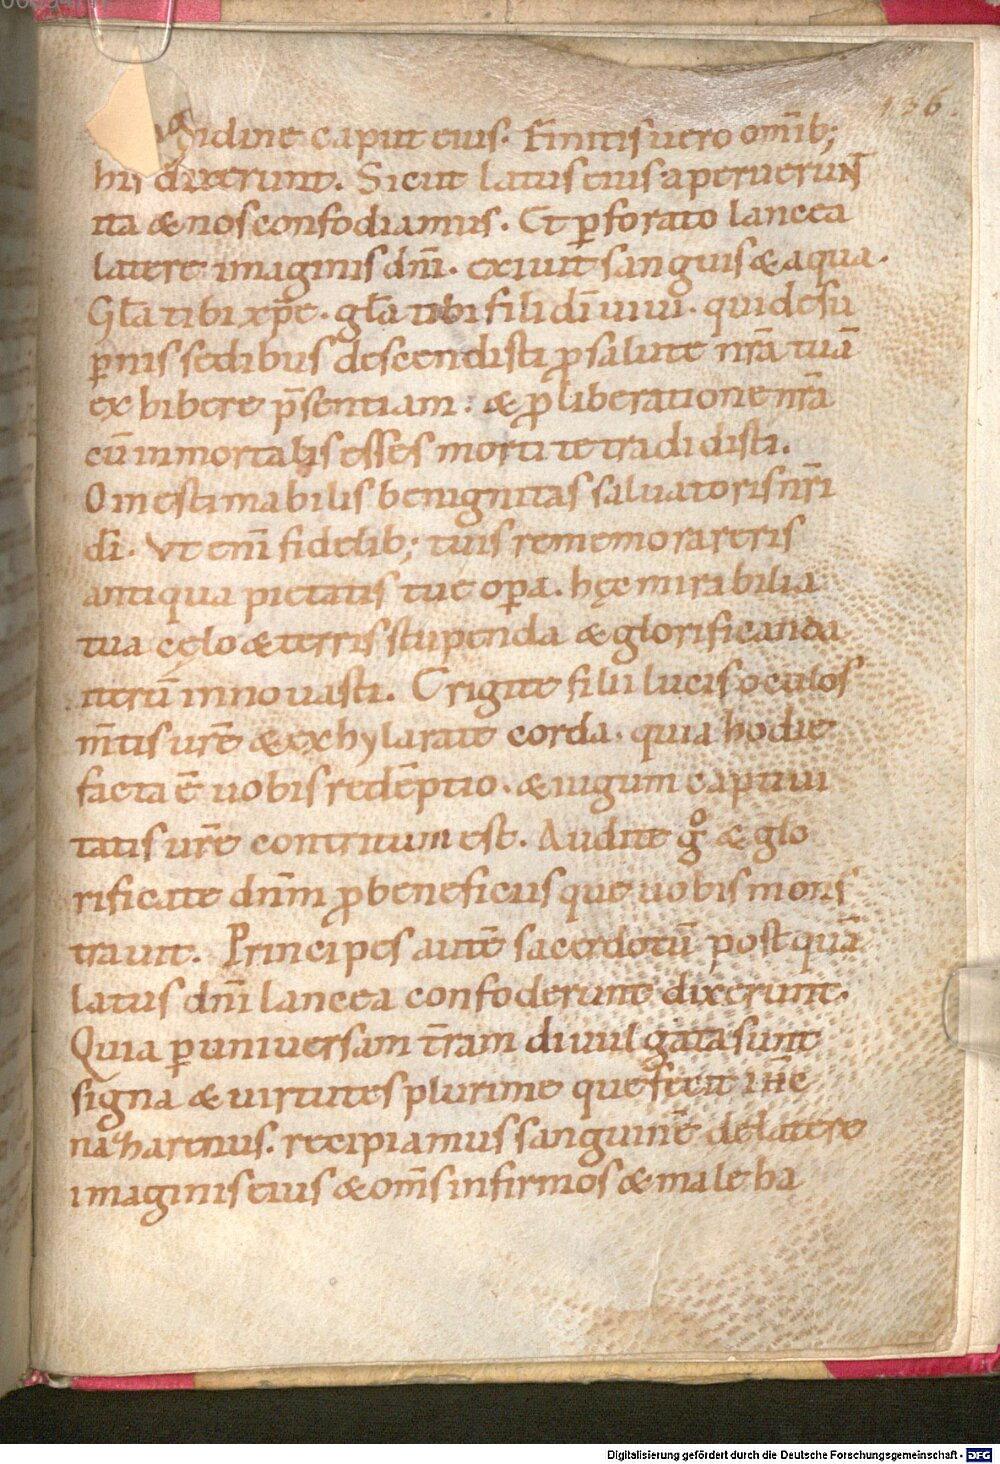 136.
gidine caput eius. Finitis uero om̅ib;
his dixerunt. Sicut latus eius aperuerunt
ita & nos confodiamus. Et ꝑforato lancea
latere imaginis dn̅i. exiuit sanguis & aqua.
Gl̅a tibi xp̅e. gl̅a tibi fili di̅ uiui. qui de su
ꝑnis sedibus descendisti ꝓ salute nr̅a tua̅
exhibere p̅sentiam. & ꝓ liberatione nr̅a
cu̅ inmortalis esses morti te tradidisti.
O inestimabilis benignitas saluatoris nr̅i
di̅. Vt eni̅ fidelib; tuis rememorareris
antiqua pietatis tue oꝑa. hęc mirabilia
tua cęlo & terris stupenda & glorificanda
iteru̅ innouasti. Erigite filii lucis oculos
m̅tis ur̅e & exhylarate corda. quia hodie
facta e̅ uobis rede̅ptio. & iugum captiui
tatis ur̅e contritum est. Audite gͦ & glo
rificate dn̅m ꝓ beneficiis que uobis mons
trauit. Principes aute̅ sacerdotu̅ postqua̅
latus dn̅i lancea confoderunt dixerunt.
Quia ꝑ uniuersam t̅ram diuulgata sunt
signa & uirtutes plurime que fecit ih̅c
nazarenus. recipiamus sanguine̅ de latere
imaginis eius & om̅s infirmos & male ha
Digitalisierung gefördert durch die Deutsche Forschungsgemeinschaft - DFG